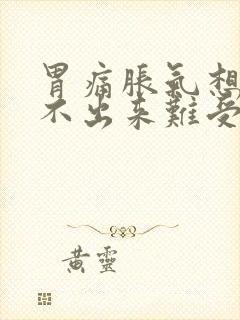 胃痛脹氣想
不出来難受
黄靈